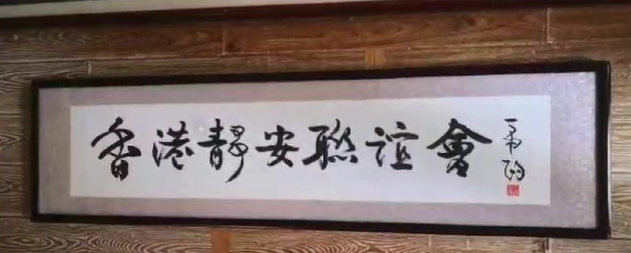 香港靜安聯誼會